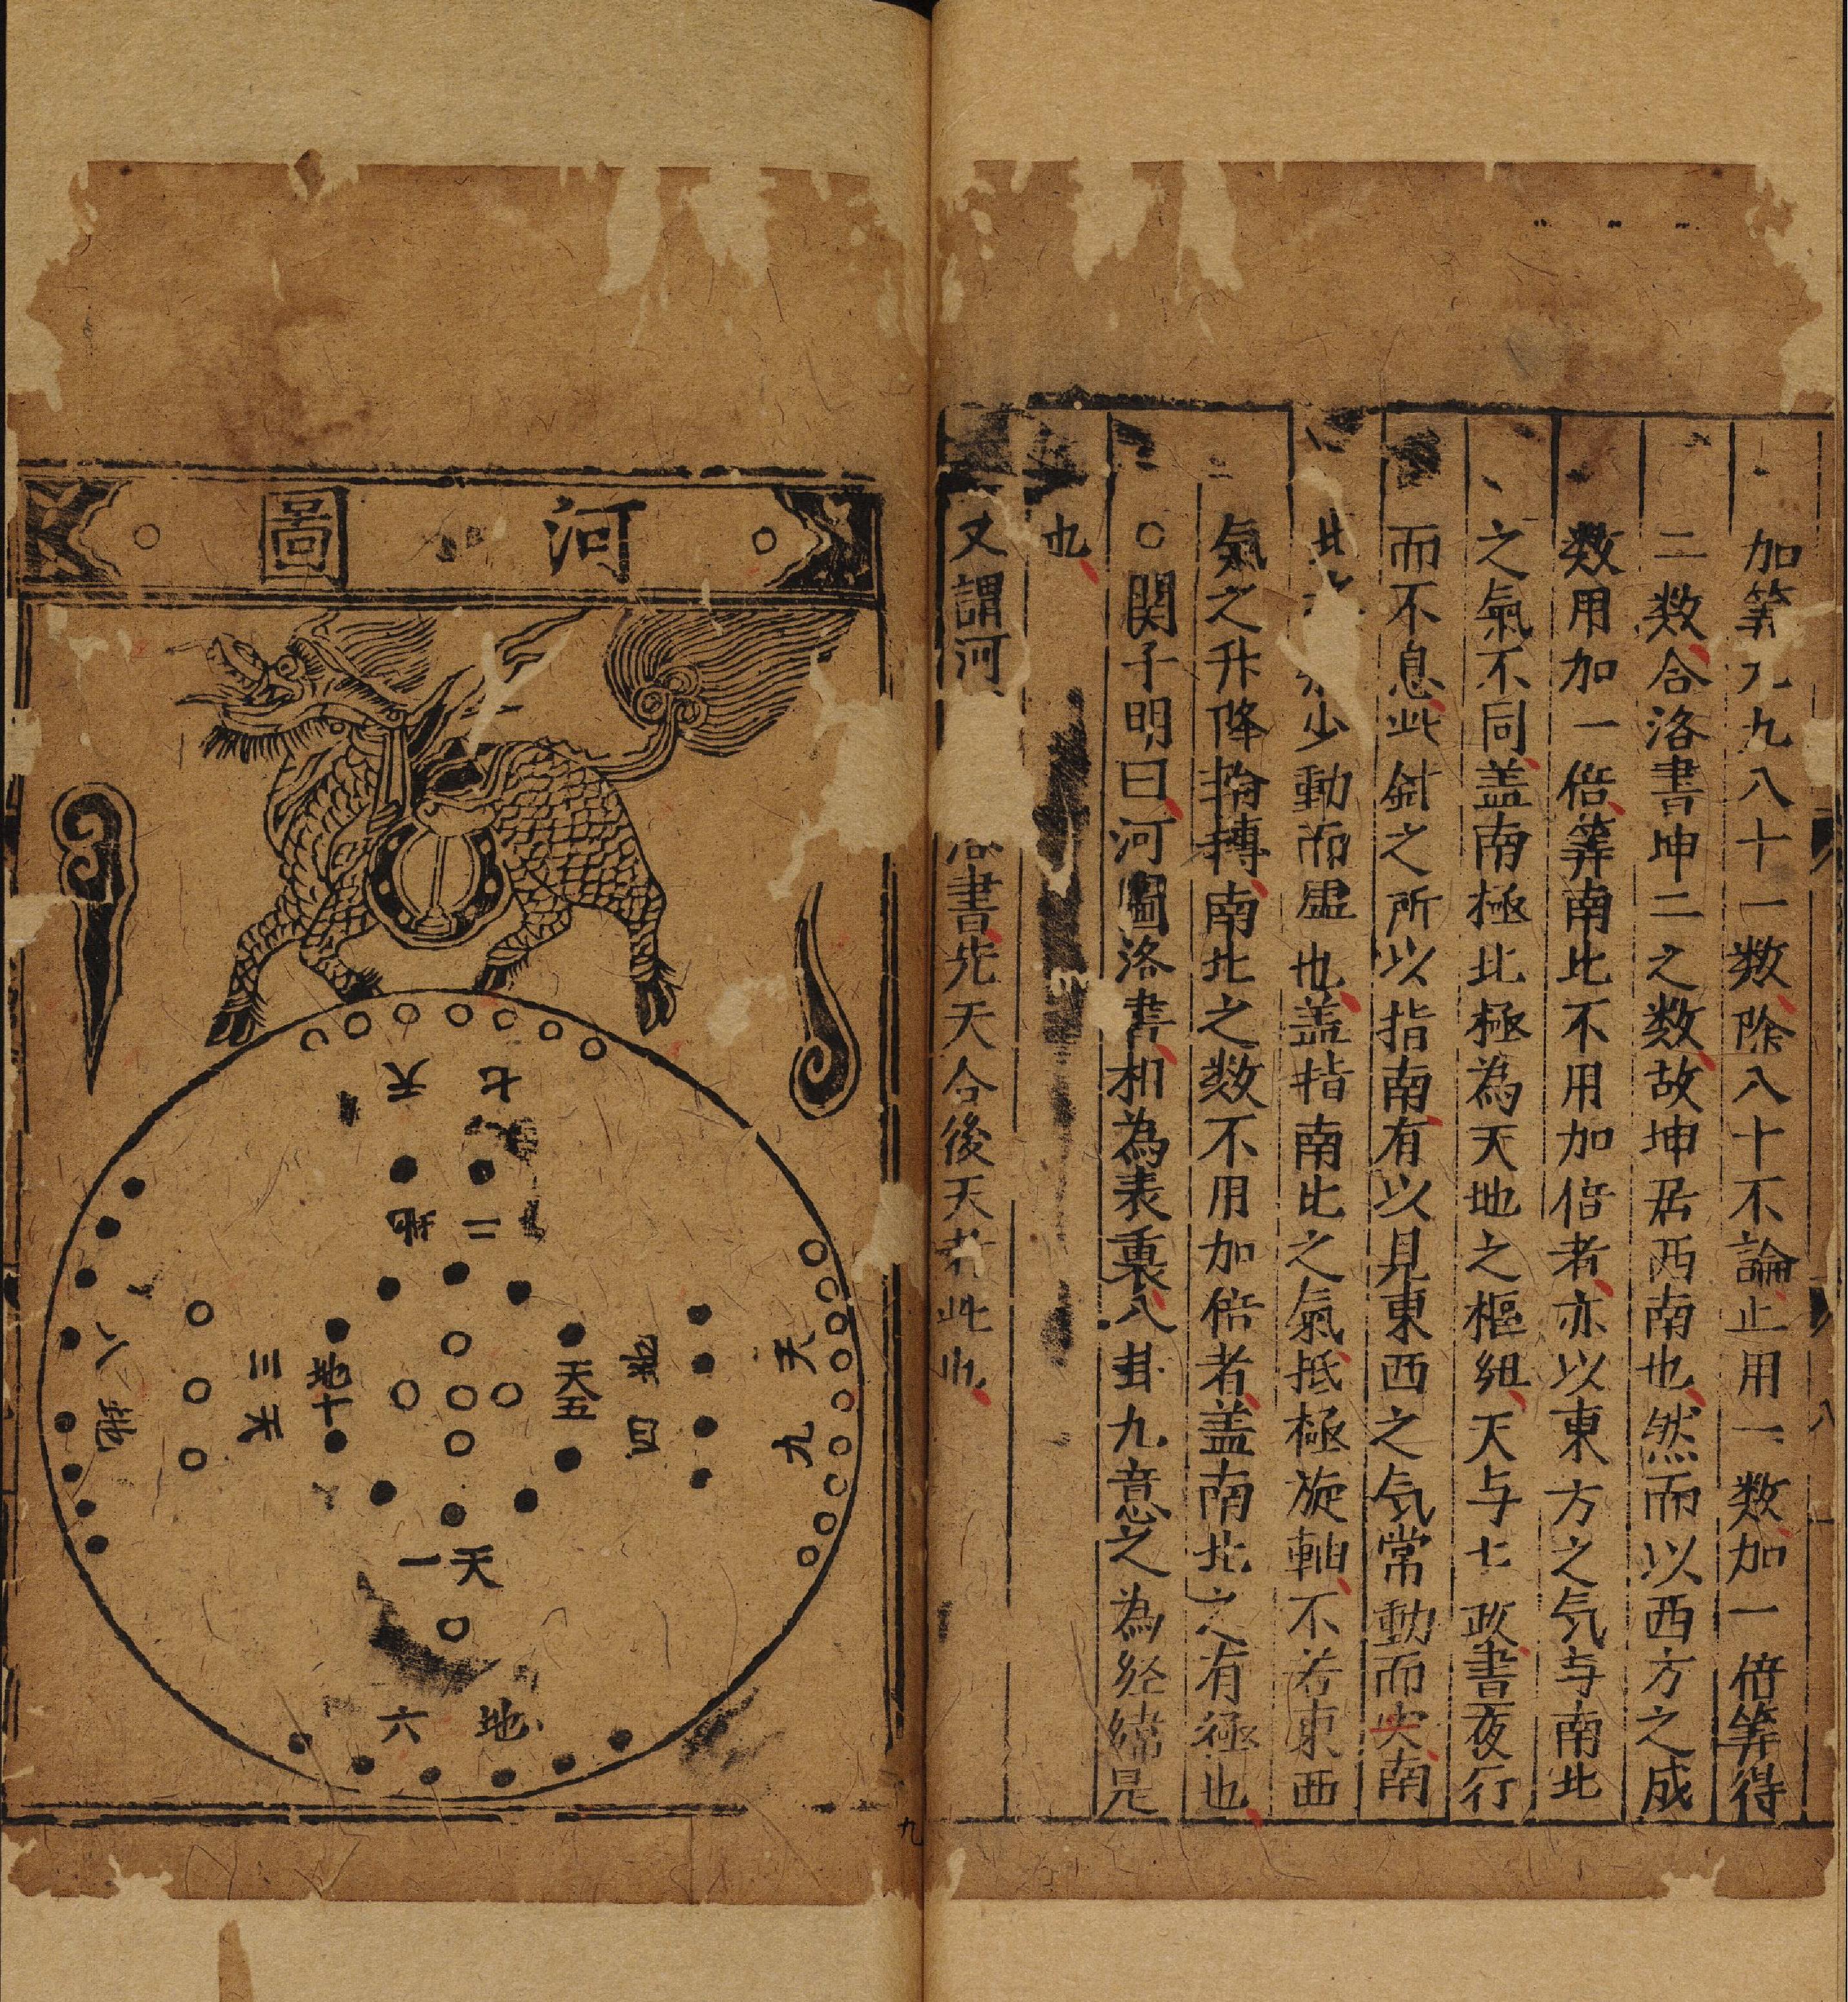 加筭九九八十一数除八十不論止用一数加一倍筭得
二数合洛書坤二之数故坤居西南也然而以西方之成
数用加一倍筭南北不用加倍者亦以東方之気与南北
之氣不同盖南極北極為天地之樞紐天与七政晝夜行
而不息此針之所以指南有以見東西之気常動而尖南
北 少動而虚也盖指南北之氣抵極旋軸不若東西
氣之升降輪轉南北之数不用加倍者盖南北之有極也
○関子明曰河圖洛書相為表裏八卦九意之為经緯是
也
又謂河 洛書先天合後天者此也
八
河圖
天七
地二
天九
地四
天五
地十
天三
地八
天一
地六
九